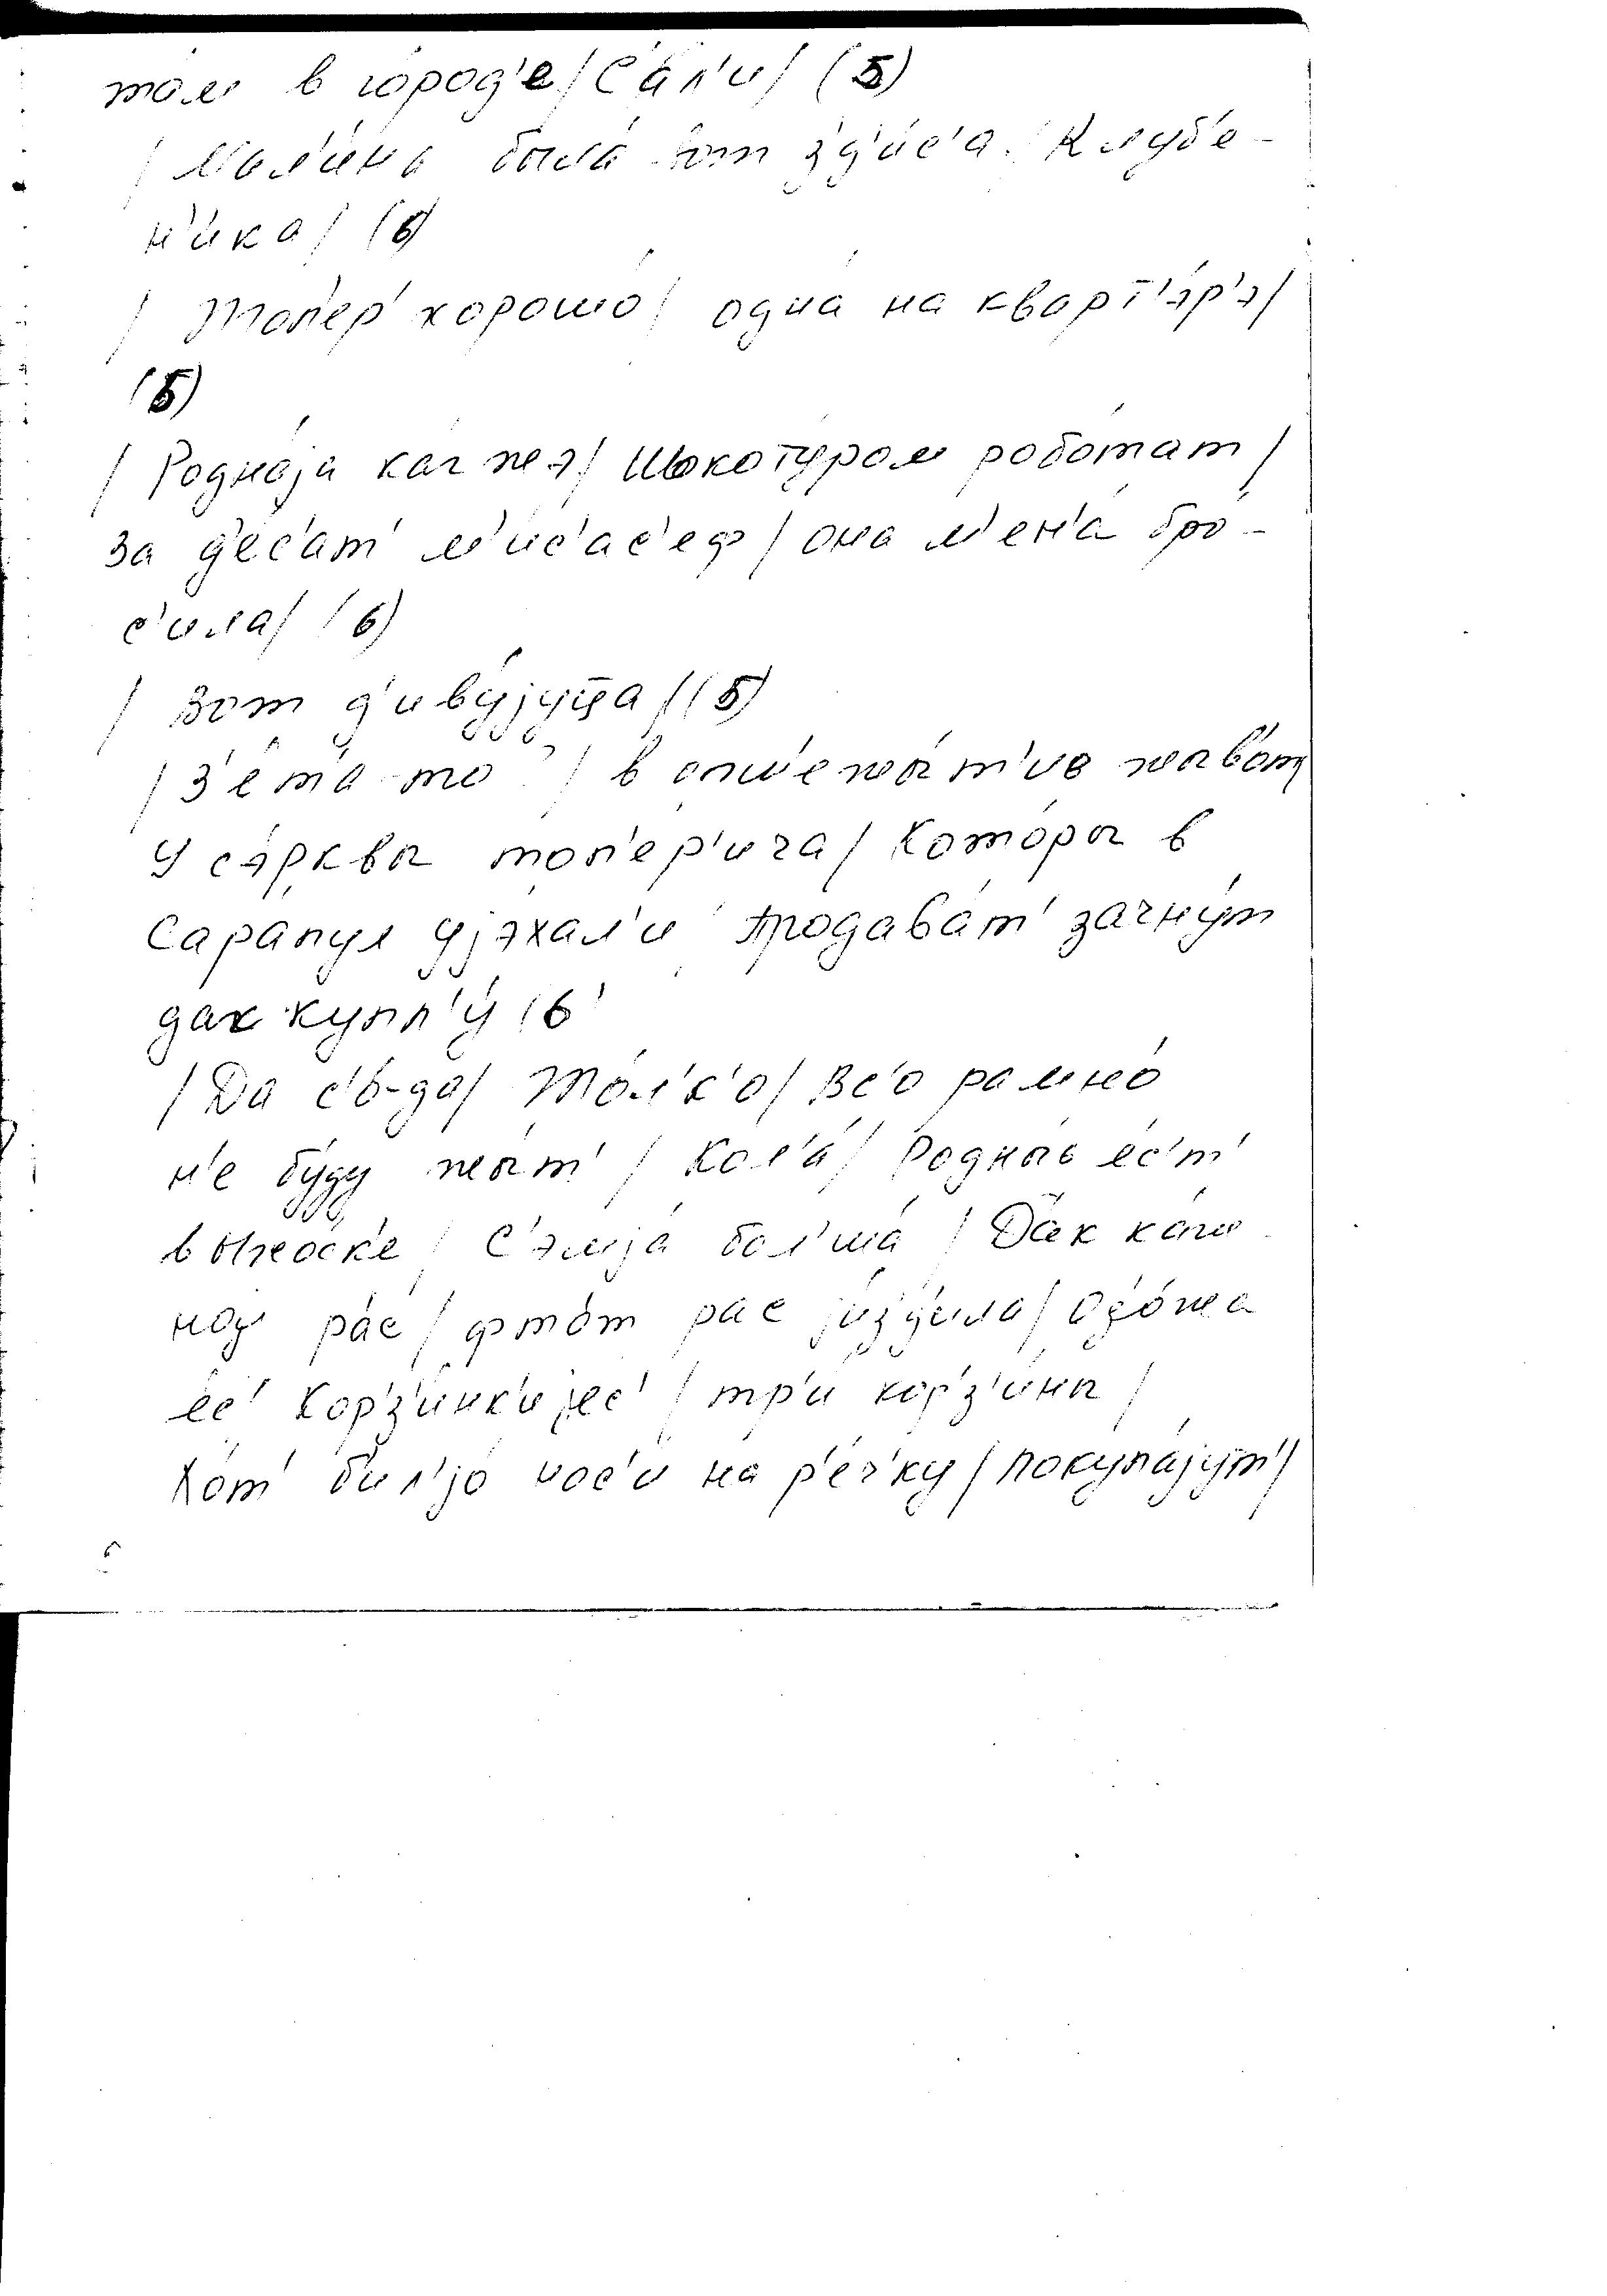 там в го́род'е/ Са́л'и/ (5)
/ Мал'и́на была́ вот з'д'и́с'а. Клуб'е-
н'и́ка/ (6)
/ Топ'е́р' хорошо́/ одна́ на кварт'э́р'э/
(5)
/ Родна́jа каг жэ/ Шокату́ром робо́тат/
за д'е́с'ат' м'и́с'ас'еф/ она м'ен'а́ бро́-
с'ила/ (6)
/ Вот д'иву́jуца/ (5)
/ З'ета́-то?/ в опш'ежы́т'ие жыво́т
У сэ́рквы топ'е́р'ича/ Кото́ры в
Сара́пул уjэ́хал'и Продава́т' зачну́т
дак купл'у́ (6
/ Да с'о-да/ То́л'к'о/ Вс'о рамно́
н'е бу́ду жы́т'/ Кол'а́/ Родны́е е́с'т'
в Ыжо́ск'е/ С'эмjа́ бол'ша́/ Да́к ка́ги
ноj ра́с/ фто́т рас jи́зд'ила/ Од'о́жа
ес' Кор'з'и́нк'и jес'/ тр'и кор'з'и́ны/
Хот' б'ил'jо́ нос'и́ на р'е́ч'ку/ покупа́jут'/